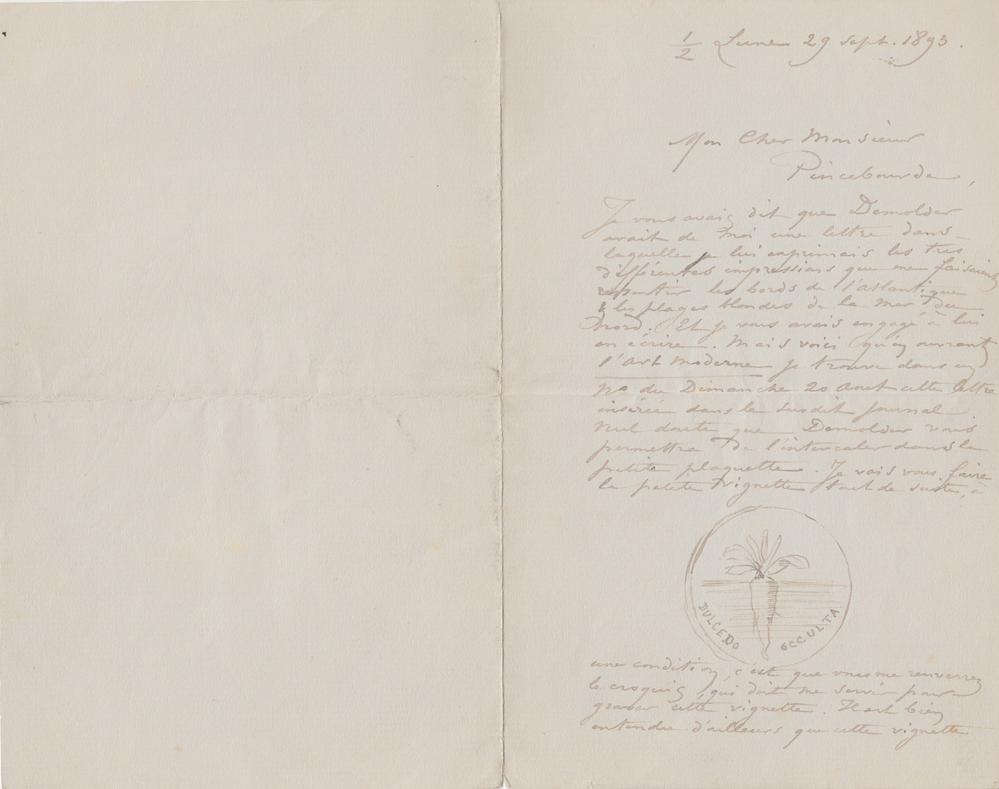 1/2 Lune 29 sept. 1893.
Mon Cher Monsieur
Pincebourde,
Je vous avais dit que Demolder
avait de moi une lettre dans
laquelle je lui exprimais les très
différentes impressions que me faisaient
ressentir les bords de l'atlantique
& les plages blondes de la mer du
Nord. Et je vous avais engagé à lui
en écrire. Mais voici qu'en ouvrant
l'art moderne je trouve dans le
no du Dimanche 20 Aout cette lettre
insérée dans le susdit journal
Nul doute que Demolder vous
permettra de l'intercaler dans la
petite plaquette. Je vais vous faire
la petite vignette tout de suite, à
DULCEDO OCCULTA
une condition, c'est que vous me renverrez
le croquis, qui doit me servir pour
graver cette vignette. Il est bien
entendu d'ailleurs que cette vignette